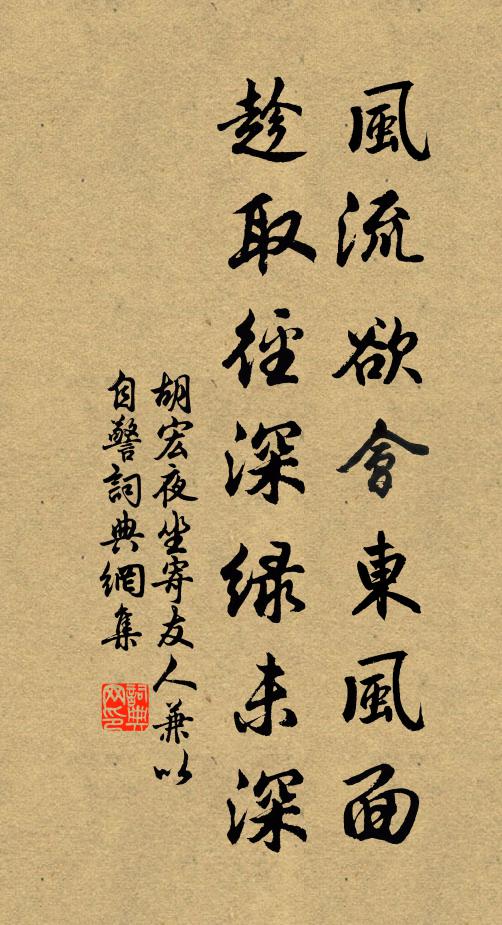 風流欲會東風面
趁取徑深緑未深
胡宏夜坐寄友人兼以
自警詞典網集
詞典
网印